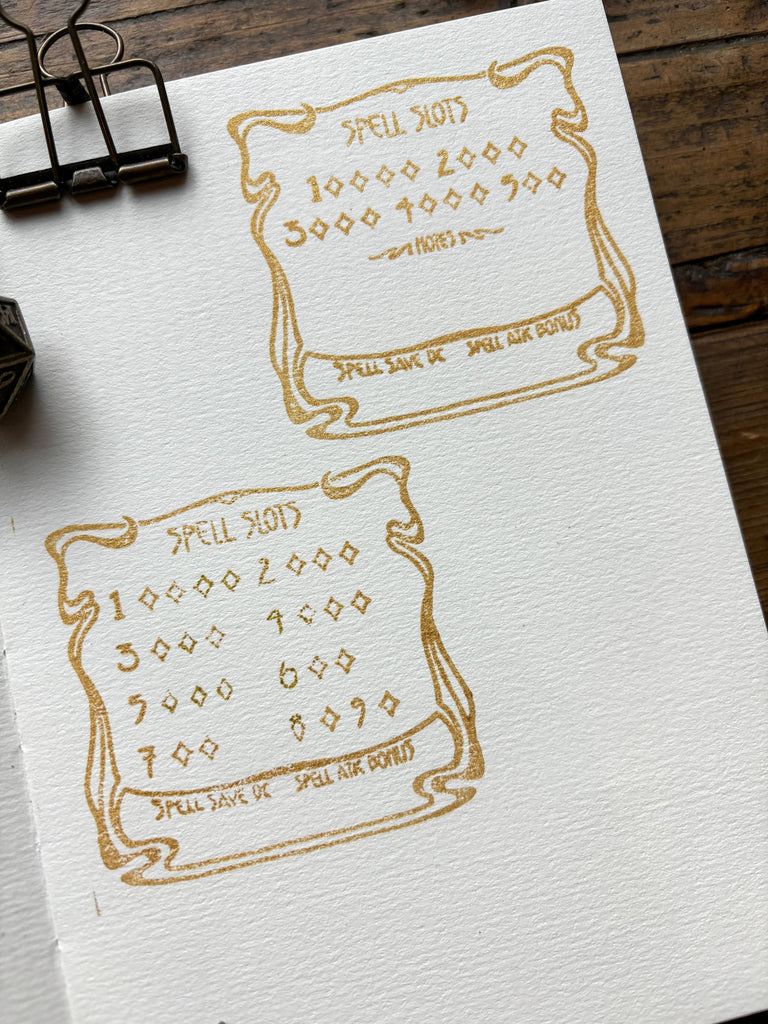 SPELL SLOTS
1 ◇◇◇◇ 2 ◇◇◇
3 ◇◇◇ 4 ◇◇◇ 5 ◇◇
NOTES
SPELL SAVE DC SPELL ATK BONUS
SPELL SLOTS
1 ◇◇◇◇ 2 ◇◇◇
3 ◇◇◇ 4 ◇◇◇
5 ◇◇◇ 6 ◇◇
7 ◇◇ 8 ◇ 9 ◇
SPELL SAVE DC SPELL ATK BONUS